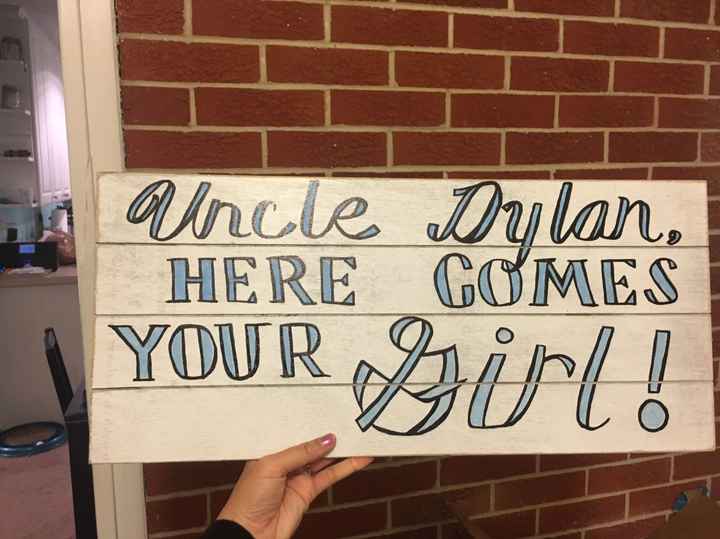 Uncle Dylan,
HERE COMES
YOUR Girl!